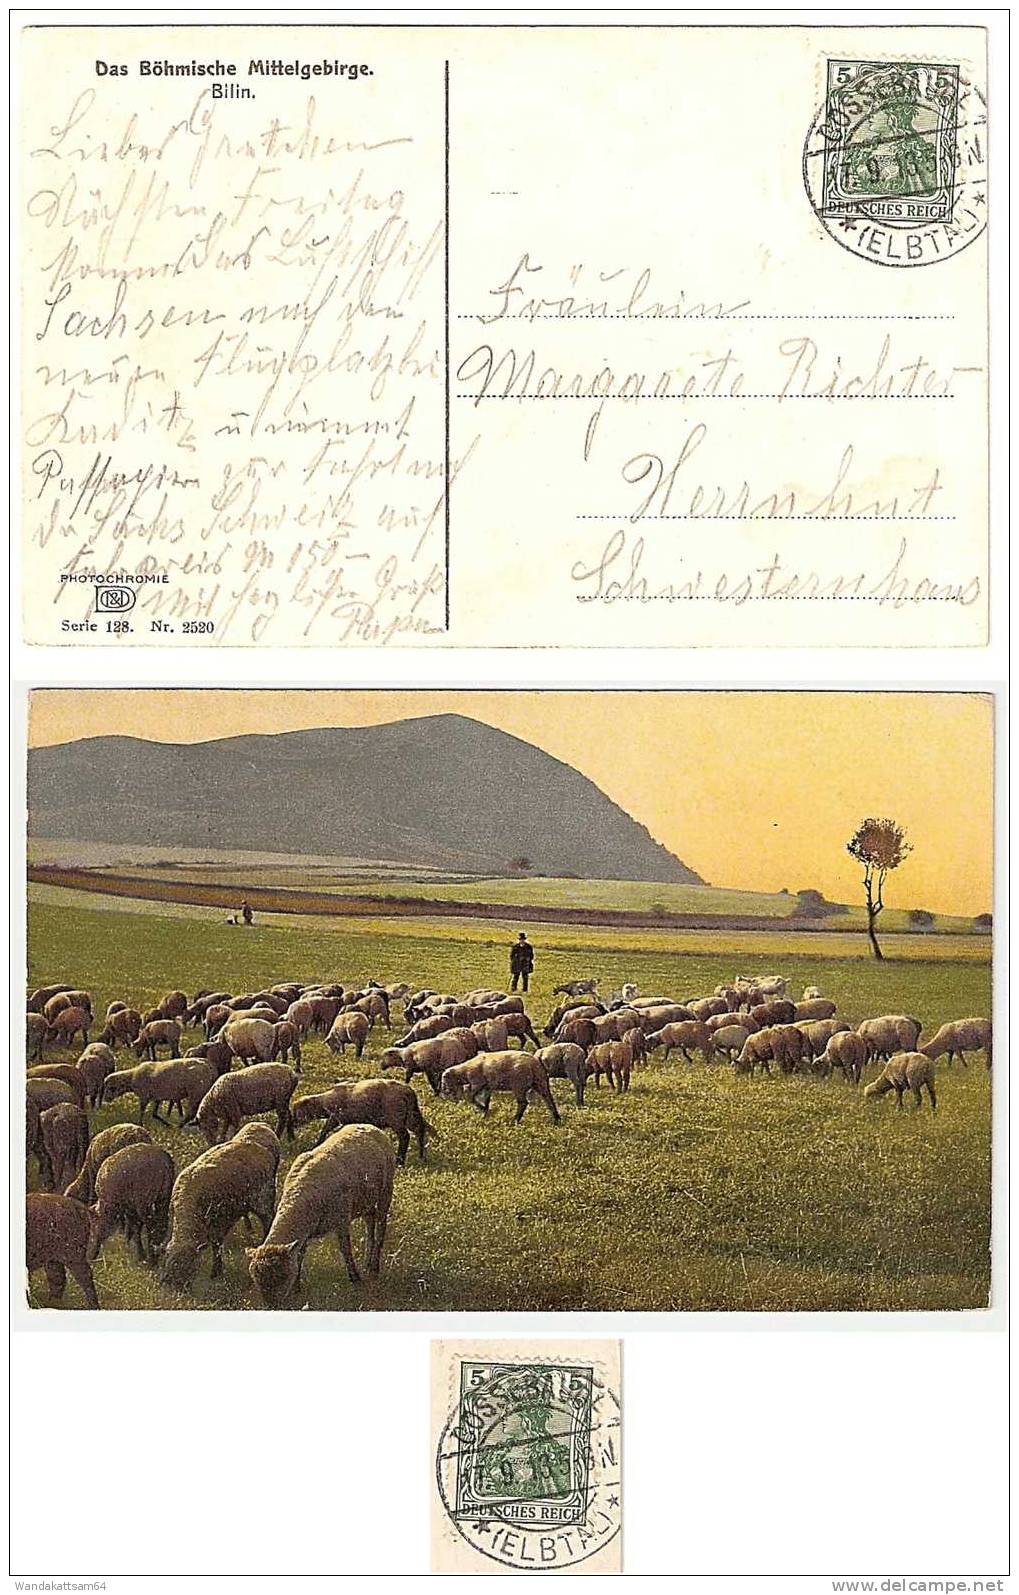 Das Böhmische Mittelgebirge.
Bilin.
Liebes Gretchen
Nächsten Freitag
kommt das Luftschiff
Sachsen nach dem
neuen Flugplatz bei
Kaditz u nimmt
Passagiere zur Fahrt nach
der Sächs Schweiz auf.
Fahrpreis M 150 –
Mit herzlichem Gruß
PHOTOCHROMIE
D&D
Serie 128. Nr. 2520
5 5
DEUTSCHES REICH
COSSEBAUDE
17.9.13.5-6N.
* (ELBTAL) *
Fräulein
Margarete Richter
Herrnhut
Schwesternhaus
5 5
DEUTSCHES REICH
COSSEBAUDE
17.9.13.5-6N.
* (ELBTAL) *
Wandakattsam64
delcampe.net